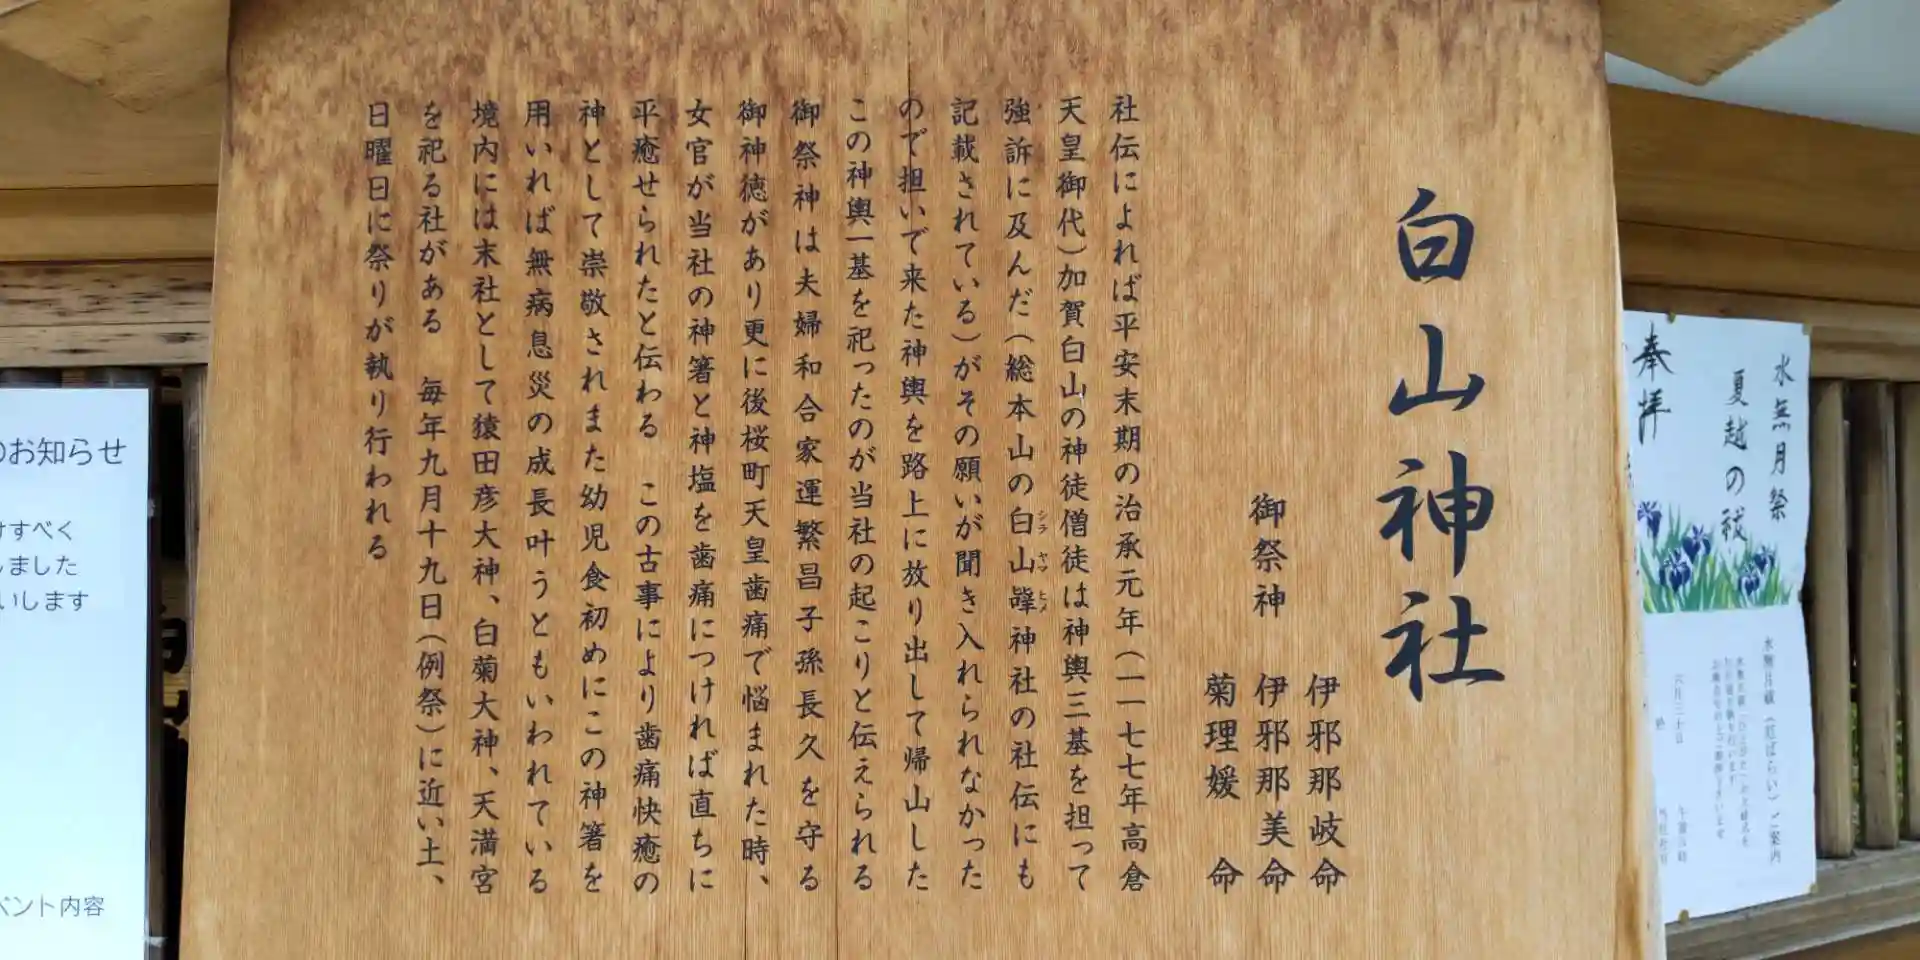 白山神社
御祭神
伊邪那岐命
伊邪那美命
菊理媛　命
社伝によれば平安末期の治承元年(一一七七年高倉
天皇御代)加賀白山の神徒僧徒は神輿三基を担って
強訴に及んだ(総本山の白山神社の社伝にも
シラ ヤマ ヒメ
記載されている)がその願いが聞き入れられなかった
ので担いで来た神輿を路上に放り出して帰山した
この神輿一基を祀ったのが当社の起こりと伝えられる
御祭神は夫婦和合家運繁昌子孫長久を守る
御神徳があり更に後桜町天皇歯痛で悩まれた時、
女官が当社の神箸と神塩を歯痛につければ直ちに
平癒せられたと伝わる　この古事により歯痛快癒の
神として崇敬されまた幼児食初めにこの神箸を
用いれば無病息災の成長叶うともいわれている
境内には末社として猿田彦大神、白菊大神、天満宮
を祀る社がある　毎年九月十九日(例祭)に近い土、
日曜日に祭りが執り行われる
水無月祭
夏越の祓
奉拝
水無月祓(厄ばらい)ご案内
六月三十日
のお知らせ
けすべく
しました
いします
ベント内容